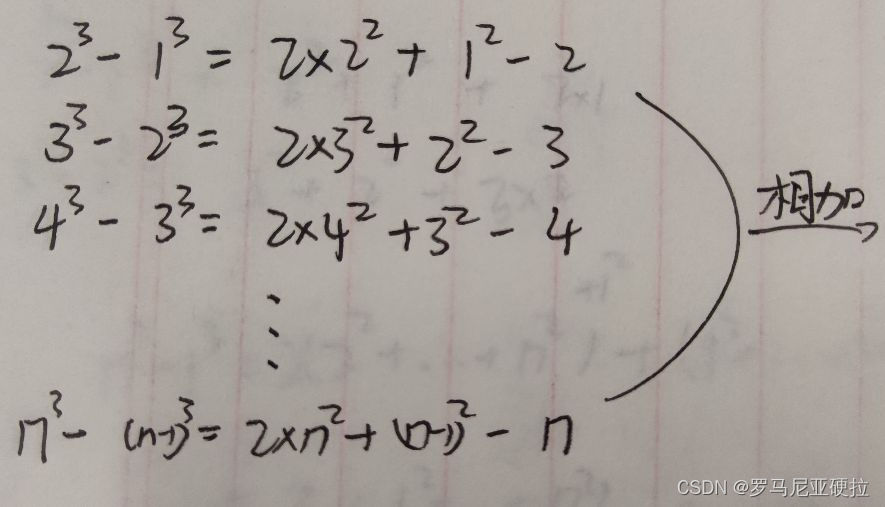 2³ - 1³ = 2×2² + 1² - 2
3³ - 2³ = 2×3² + 2² - 3
4³ - 3³ = 2×4² + 3² - 4
相加
⋮
n³ - (n-1)³ = 2×n² + (n-1)² - n
CSDN @罗马尼亚硬拉